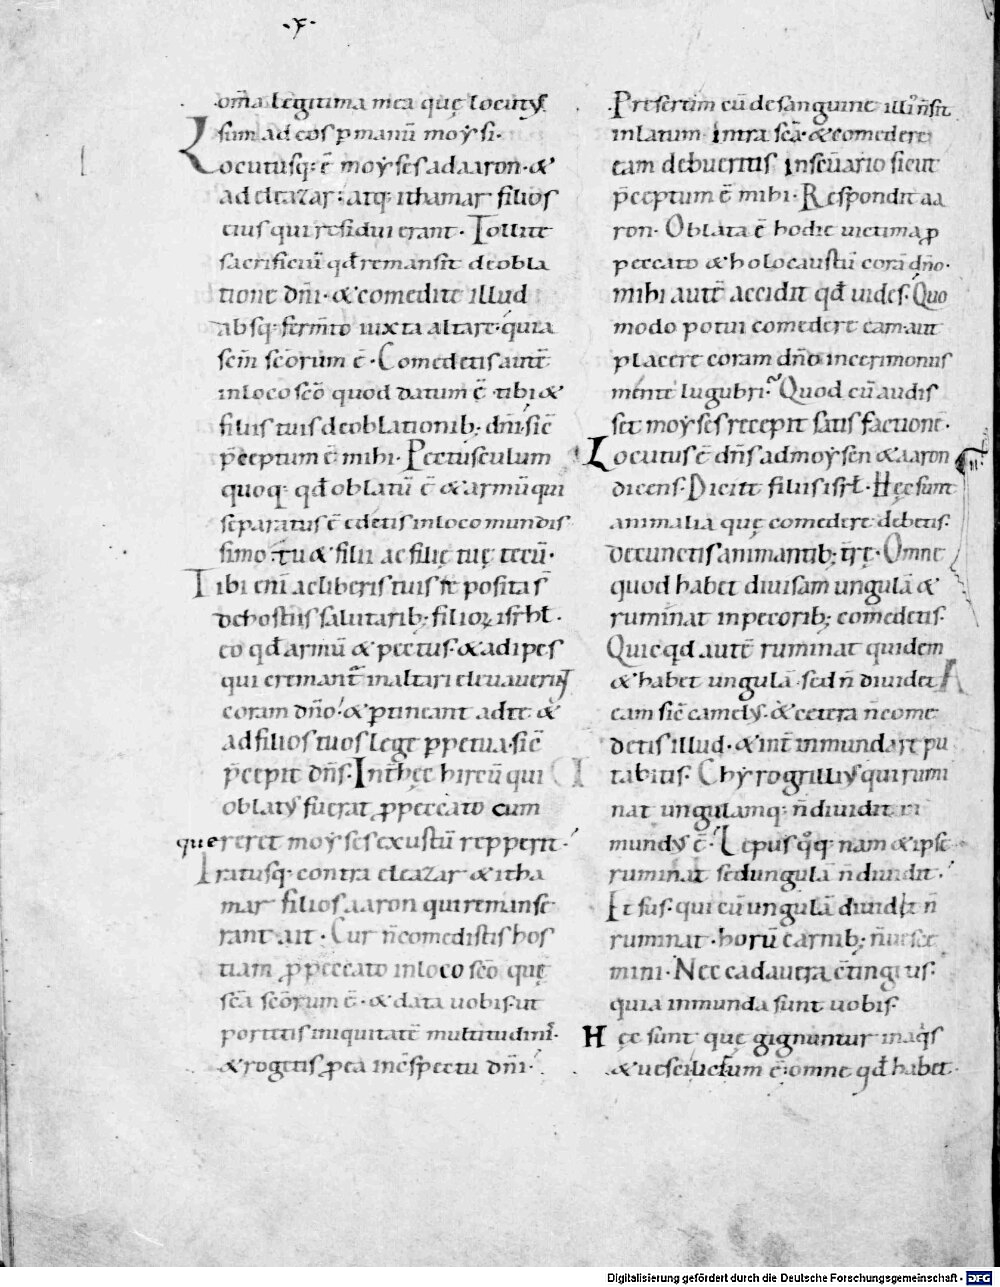 ·x·
om̅a legitima mea quę locutus
sum ad eos p manū moysi·
Locutusq· ē moyses ad aaron· &
ad eleazar· atq· ithamar filios
eius qui residui erant· Tollite
sacrificiū qd̄ remansit de obla
tione dn̄i· & comedite illud
absq· ferm̄to iuxta altare· quia
scm̄ sc̄orum ē· Comedetis aut̄
in loco sc̄o quod datum ē tibi &
filiis tuis de oblationib; dn̄i· sic̄
p̄ceptum ē mihi· Pectusculum
quoq· qd̄ oblatū ē & armū qui
separatus ē edetis in loco mundis
simo· tu & filii ac filię tuę tecū·
Tibi eni̅ ac liberis tuis posita s̄
de hostiis salutarib; filioꝝ isrhl̄·
eo qd̄ armū & pectus· & adipes
qui cremant̄ in altari elevaverint
coram dn̄o· & ptineant ad te &
ad filios tuos lege p̱petua· sic̄
p̄cepit dn̄s· Int̄ hęc hircū qui
oblatus fuerat ꝓ peccato cum
quereret moyses exustū repperit·
Iratusq· contra eleazar & itha
mar filios aaron qui remanse
rant ait· Cur n̄ comedistis hos
tiam ꝓ peccato in loco sc̄o quę
sc̄a sc̄orum ē· & data vobis· ut
portetis iniquitatē multitudinis·
& rogetis ꝓ ea in c̄spectu dn̄i·
Presertim cū de sanguine illius n̄ sit
inlatum intra sc̄a· & comedere
eam debueritis in sc̄uario sicut
p̄ceptum ē mihi· Respondit aa
ron· Oblata ē hodie victima ꝓ
peccato & holocaustū corā dn̄o·
mihi autē accidit qd̄ vides· Quo
modo potui comedere eam· aut
placere coram dn̄o in cerimoniis
mente lugubri· Quod cū audis
set moyses recepit satisfactionē·
Locutus ē dn̄s ad moysen & aaron
dicens· Dicite filiis isrl̄· Hęc sunt
animalia que comedere debetis·
de cunctis animantib; tr̄e· Omne
quod habet divisam ungulā &
ruminat in pecorib; comedetis·
Quicqd autē ruminat quidem
& habet ungulā· sed n̄ dividet
eam sic̄ camelus· & cetera n̄ come
detis illud· & int̄ inmunda repu
tabitis· Chyrogrillius qui rumi
nat ungulamq· n̄ dividit in
mundus ē· Lepus q̊q· nam & ipse
ruminat sed ungulā n̄ dividit·
Et sus· qui cū ungulā dividat n̄
ruminat· horū carnib; n̄ vesce
mini· Nec cadavera c̄tingitis·
quia inmunda sunt vobis·
Hęc sunt quę gignuntur in aqis
& vesci licitum ē· omne qd̄ habet
Digitalisierung gefördert durch die Deutsche Forschungsgemeinschaft - DFG